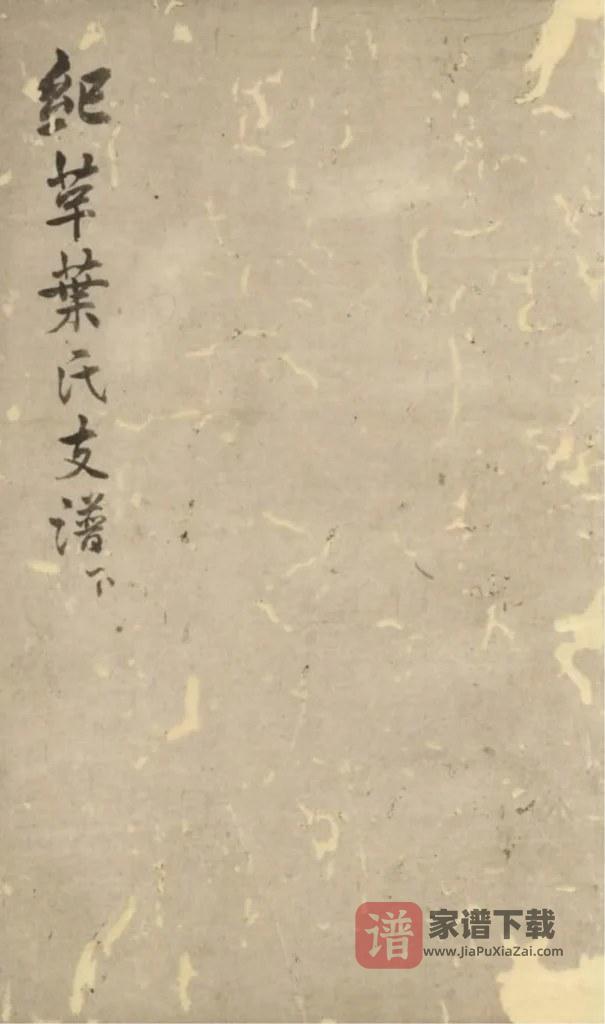 紀革葉氏支譜下
谱 家谱下载
www.JiaPuXiaZai.com